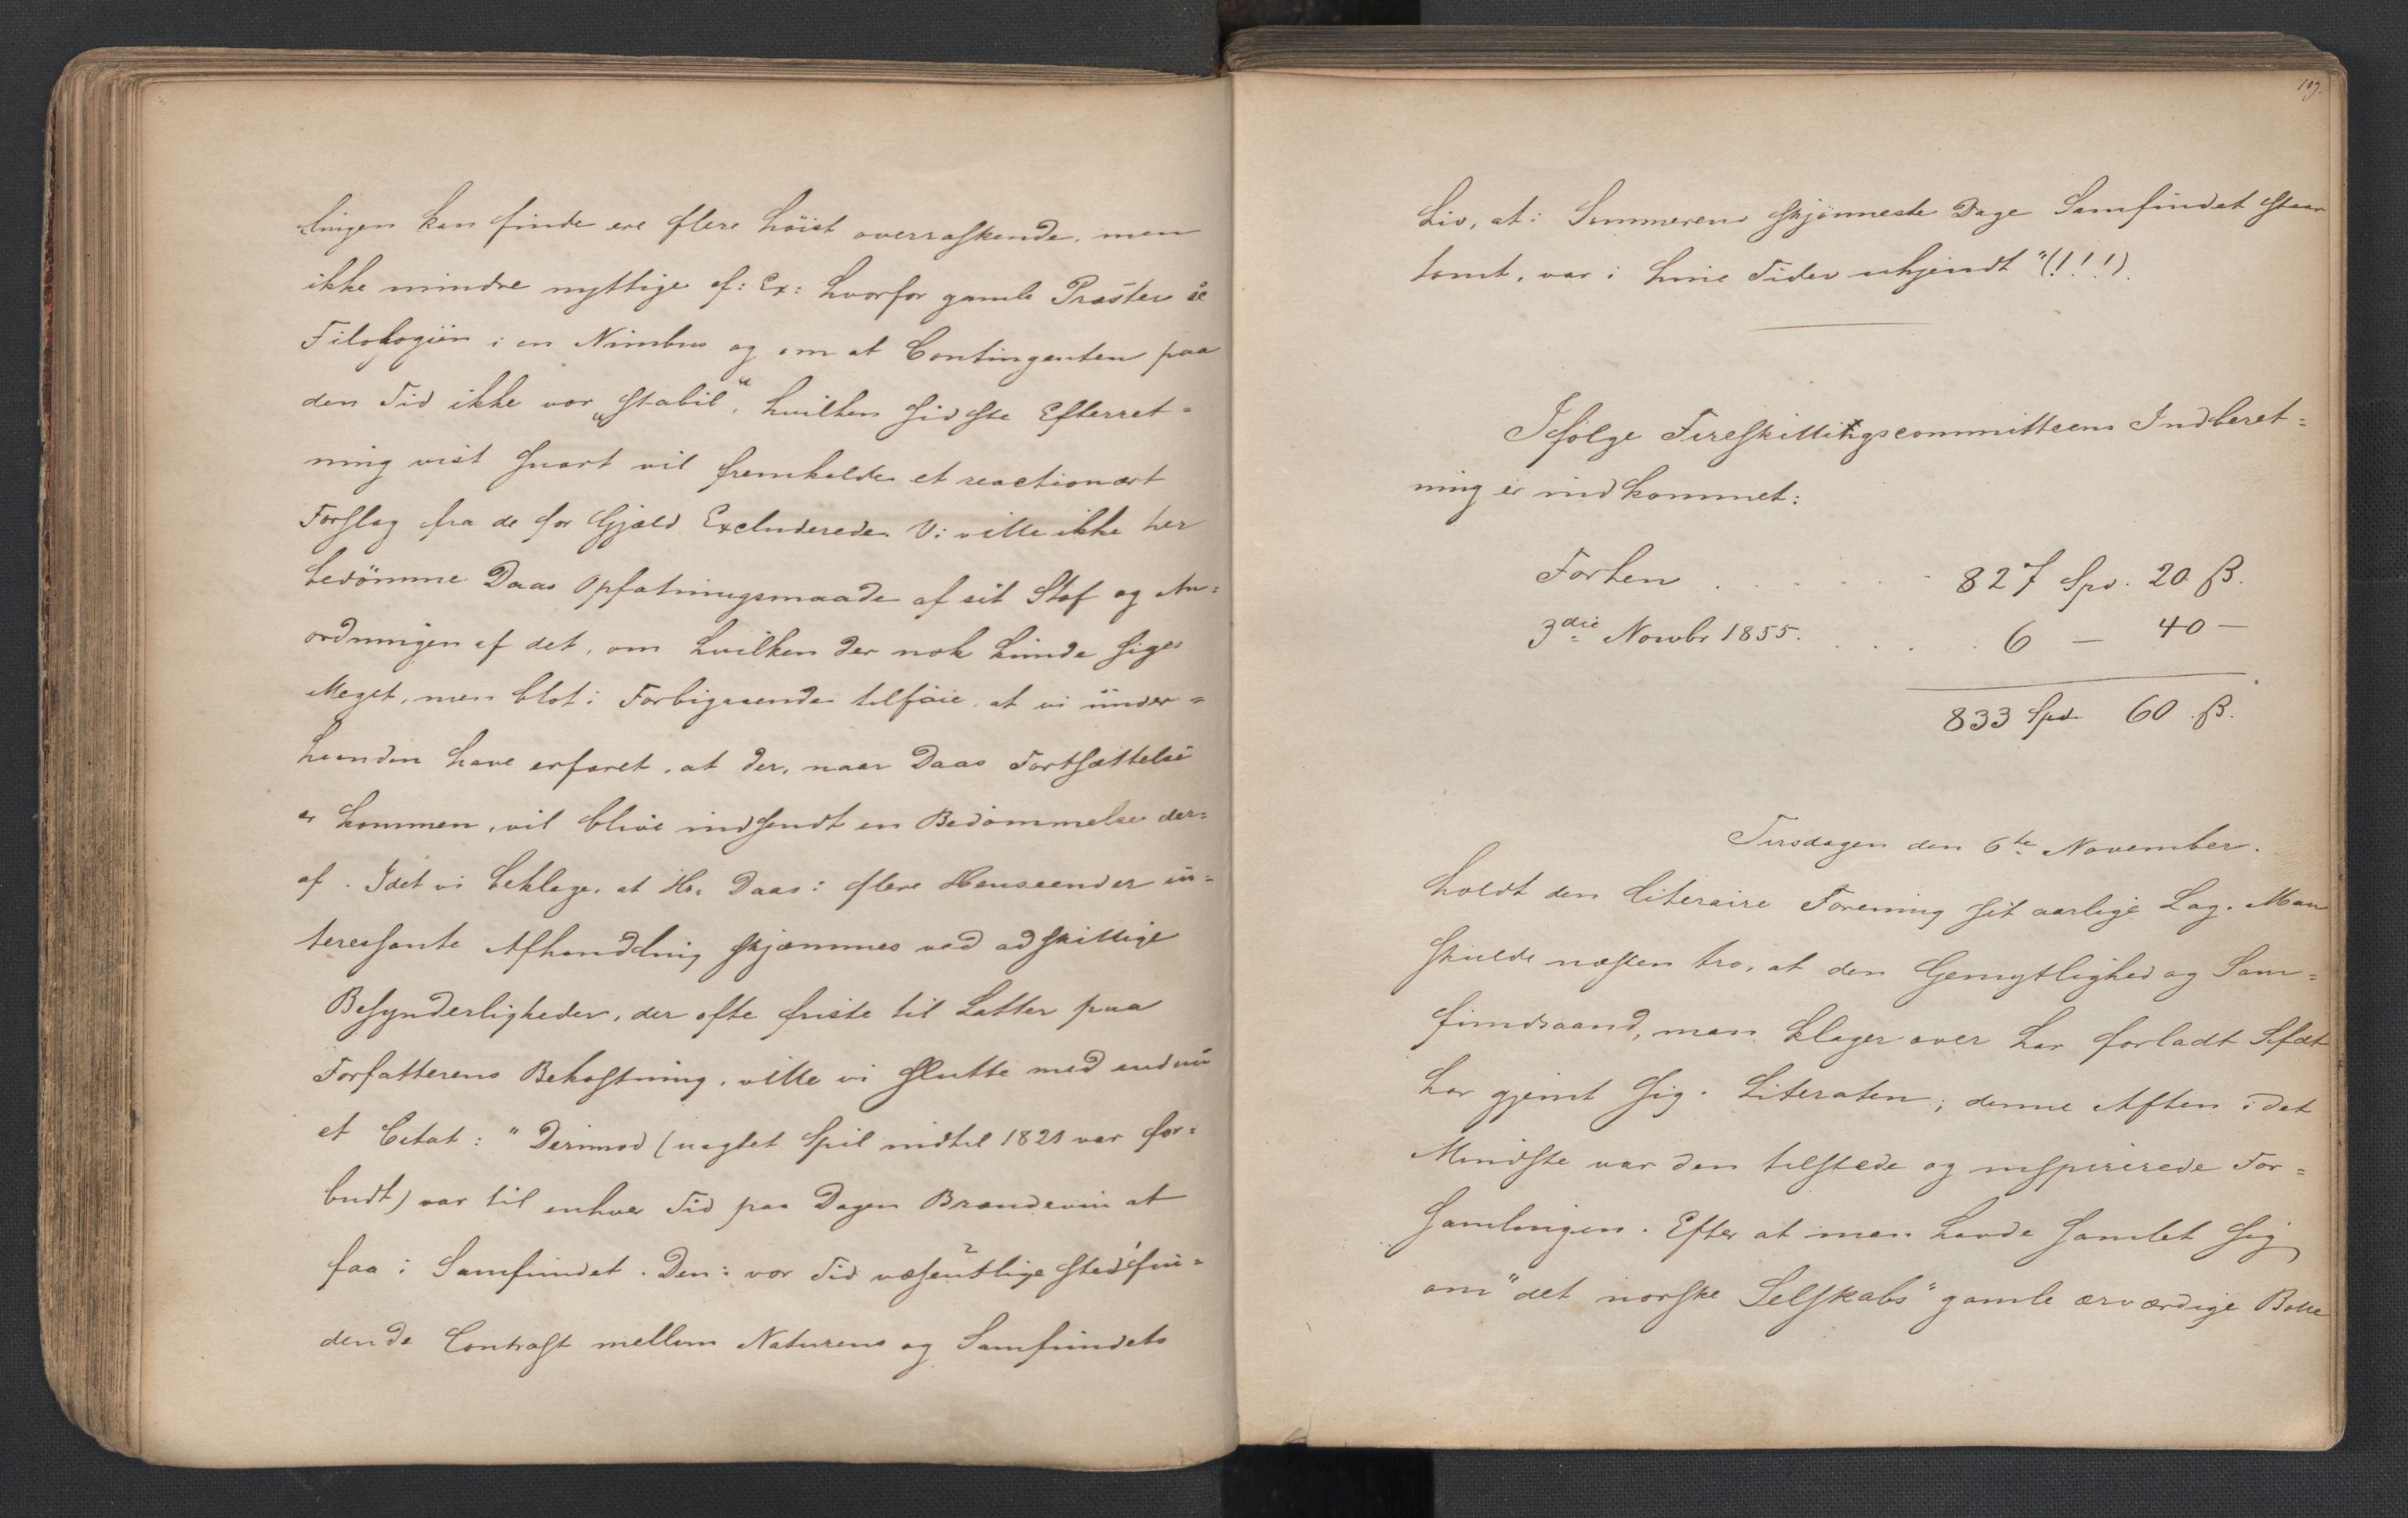 lingen kan finde ere flere høist overraskende, men
ikke mindre nyttige f: Ex: hvorfor gamle Præster se
Filologien i en Nimbus og om at Contingenten paa
den Tid ikke var „stabil“, hvilken sidste Efterret=
ning vist snart vil fremkalde et reactionært
Forslag fra de for Gjæld Excluderede. Vi ville ikke her
bedömme Daas Opfatningsmaade af sit Stof og An=
ordningen af det, om hvilken der nok kunde siges
Meget, men blot i Forbigaaende tilföie, at vi under=
haanden have erfaret, at der, naar Daas Fortsættelse
er kommen, vil blive indsendt en Bedömmelse der=
af. Idet vi beklage, at Hr. Daas i flere Henseender in=
teressante Afhandling skjæmmes ved adskillige
Besynderligheder, der ofte friste til Latter paa
Forfatterens Bekostning, ville vi slutte med endnu
et Citat: "Derimod (uagtet Spil indtil 1821 var for=
budt) var til enhver Tid paa Dagen Brændeviin at
faa i Samfundet. Den i vor Tid væsentlige stedfin=
dende Contrast mellem Naturens og Samfundets
109.
Liv, at i Sommerens skjönneste Dage Samfundet staar
tomt, var i hine Tider ukjendt"(!!!)
Ifölge Fireskillingscommitteens Indberet=
ning er indkommet:
Forhen . . . . . . 827 Spd. 20 ß.
3die Novbr 1855. . . . . 6 — 40 —
833 Spd. 60 ß.
Tirsdagen den 6te November.
holdt den literaire Forening sit aarlige Lag. Man
skulde næsten tro, at den Gemytlighed og Sam=
fundsaand, man klager over har forladt Sfdt
har gjemt sig i Literaten; denne Aften i det
Mindste var den tilstede og inspirerede For=
samlingen. Efter at man havde samlet sig
om "det norske Selskabs" gamle ærværdige Bolle